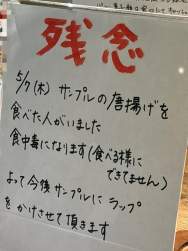 残念
5/7(木) サンプルの唐揚げを
食べた人がいました
食中毒になります(食べる様に
できてません)
よって今後サンプルに ラップ
をかけさせて頂きます